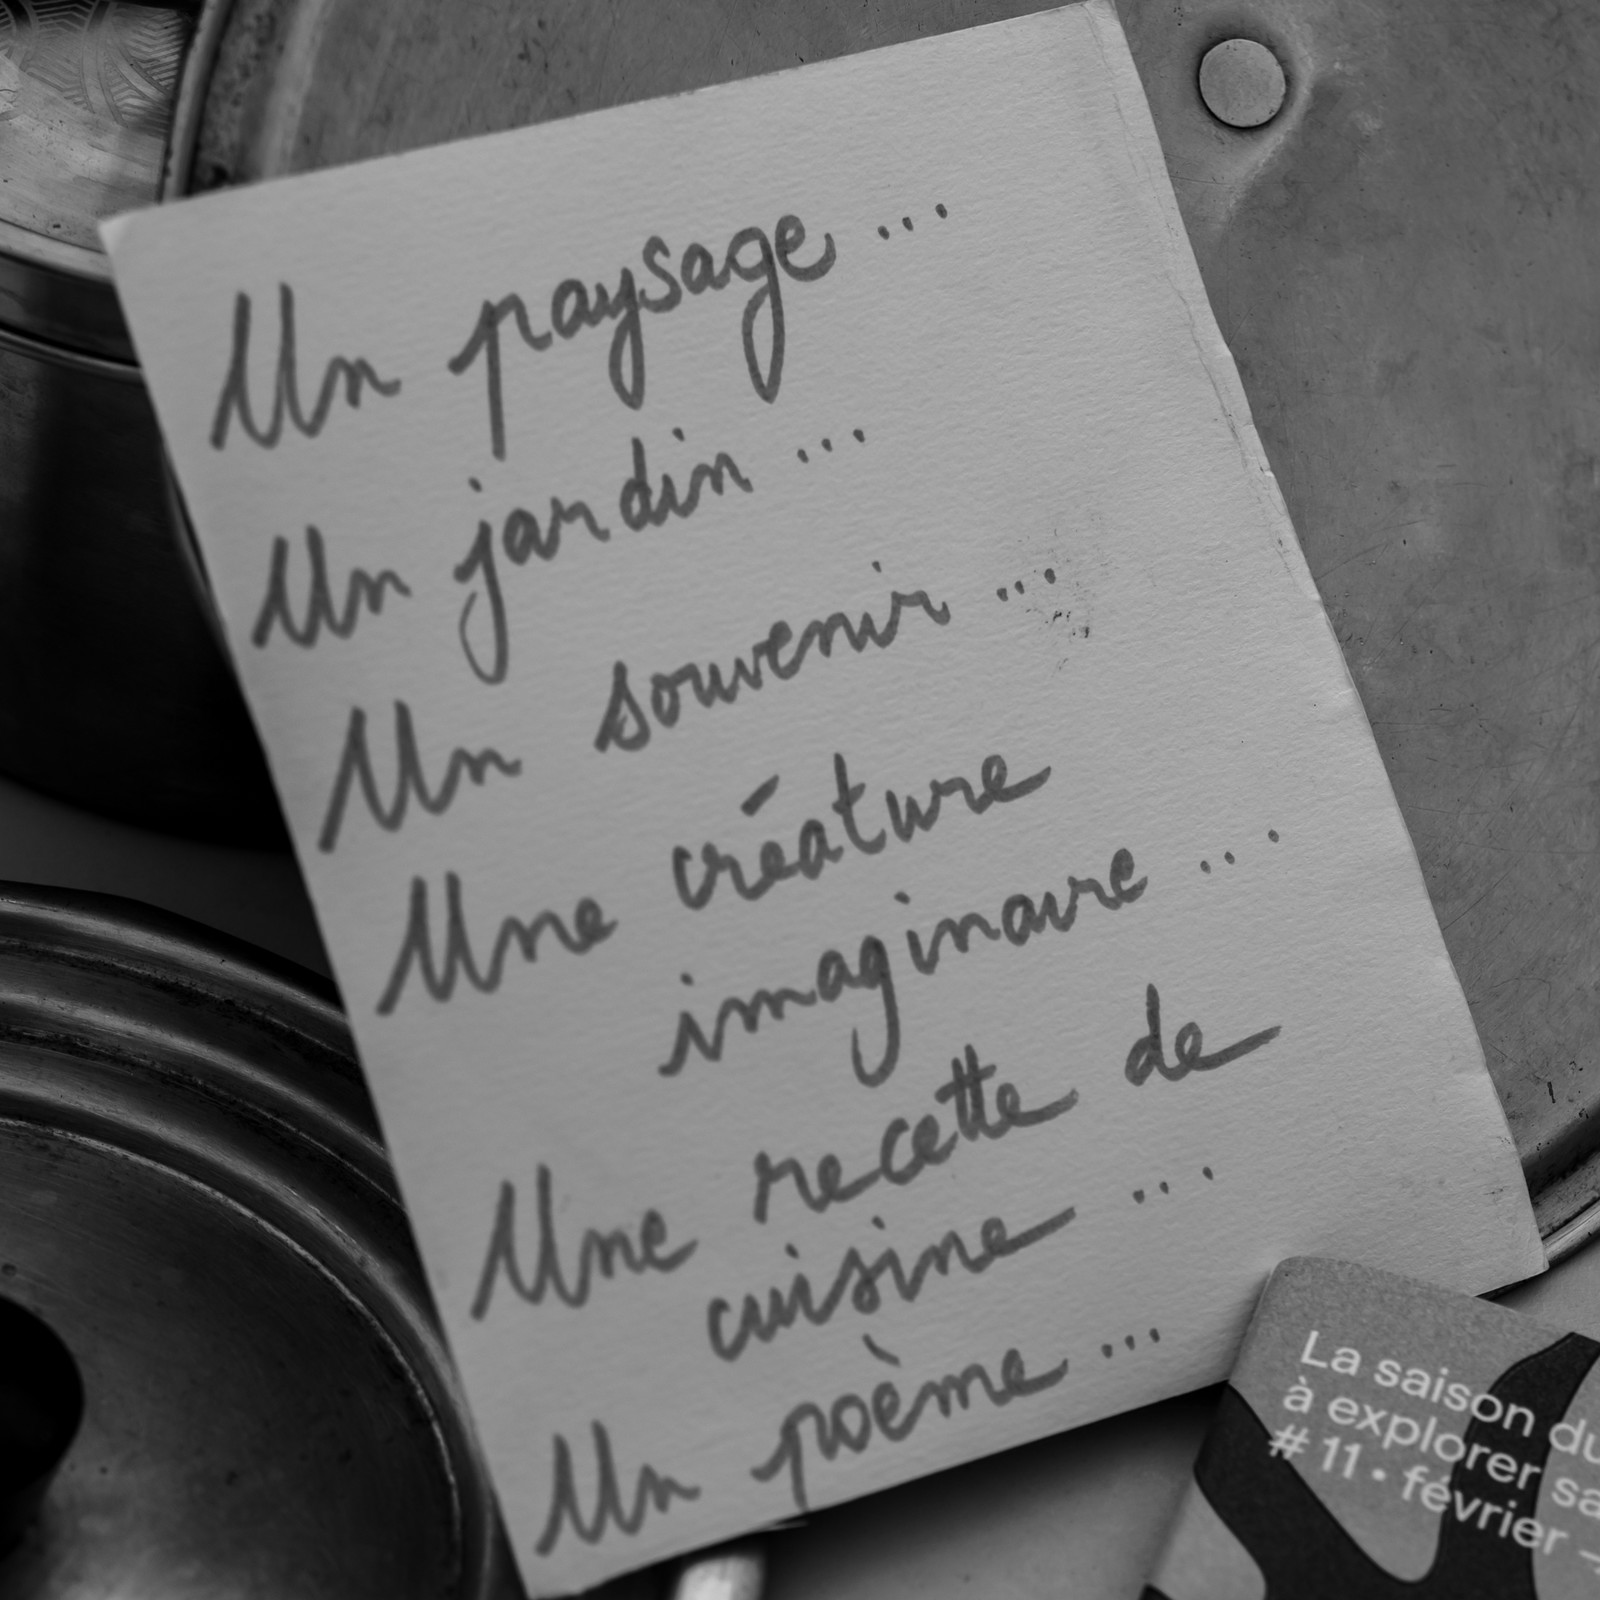 Un paysage ...
Un jardin ...
Un souvenir ...
Une créature
imaginaire ...
Une recette de
cuisine ...
Un poème ...
La saison du
à explorer sa
# 11 • février →